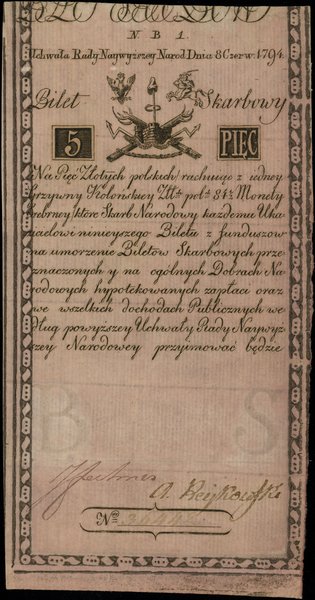 N B 1.
Uchwała Rady Naywyższey Narod. Dnia 8 Czerw. 1794.
Bilet Skarbowy
5 PIĘĆ
Na Pięć Złotych polskich rachuiąc z iedney
Grzywny Kolońskiey Złł. pol. 84½ Monety
Srebrney, które Skarb Narodowy każdemu Oka-
zicielowi ninieyszego Biletu z funduszow
na umorzenie Biletów Skarbowych prze-
znaczonych y na ogolnych Dobrach Na-
rodowych hypotekowanych zapłaci oraz
we wszelkich dochodach Publicznych we-
dług powyższey Uchwały Rady Naywyż-
szey Narodowey przyimować będzie
B S
N.